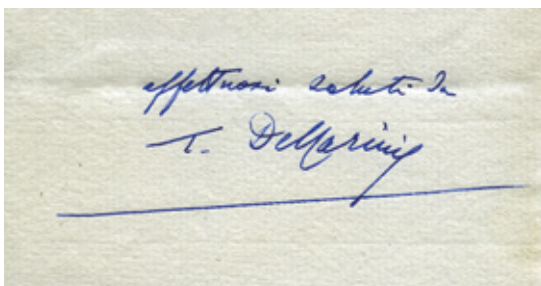 affettuosi saluti da
T. DeMarinis